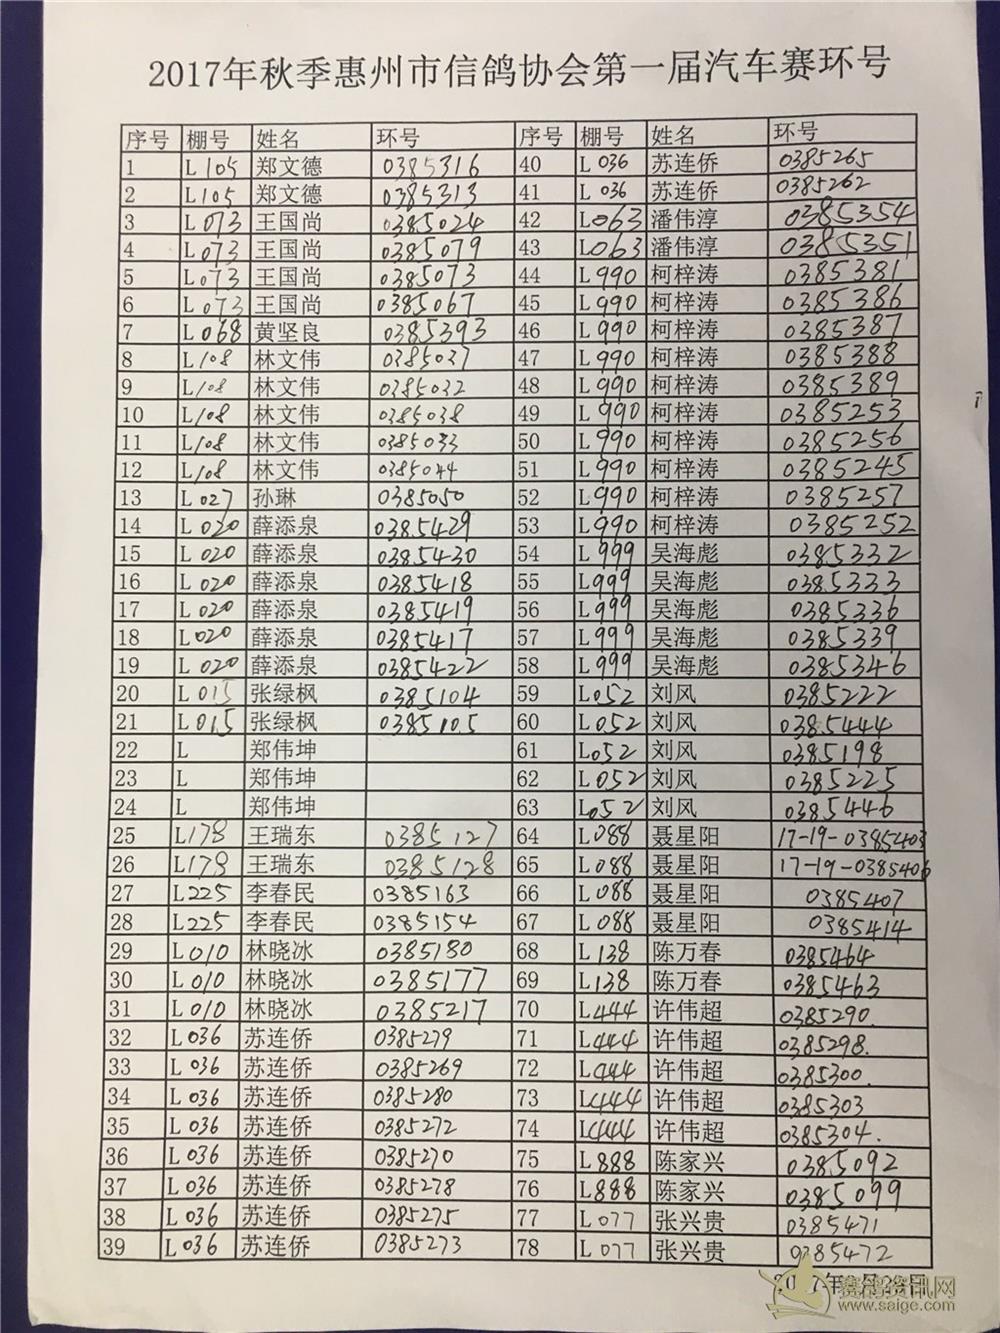 2017年秋季惠州市信鸽协会第一届汽车赛环号
序号 棚号 姓名 环号 序号 棚号 姓名 环号
1 L105 郑文德 0385316 40 L036 苏连侨 0385265
2 L105 郑文德 0385313 41 L036 苏连侨 0385262
3 L073 王国尚 0385024 42 L063 潘伟淳 0385354
4 L073 王国尚 0385079 43 L063 潘伟淳 0385351
5 L073 王国尚 0385073 44 L990 柯梓涛 0385381
6 L073 王国尚 0385067 45 L990 柯梓涛 0385386
7 L068 黄坚良 0385393 46 L990 柯梓涛 0385387
8 L108 林文伟 0385037 47 L990 柯梓涛 0385388
9 L108 林文伟 0385032 48 L990 柯梓涛 0385389
10 L108 林文伟 0385038 49 L990 柯梓涛 0385253
11 L108 林文伟 0385033 50 L990 柯梓涛 0385256
12 L108 林文伟 0385044 51 L990 柯梓涛 0385245
13 L027 孙琳 0385050 52 L990 柯梓涛 0385257
14 L020 薛添泉 0385429 53 L990 柯梓涛 0385252
15 L020 薛添泉 0385430 54 L999 吴海彪 0385332
16 L020 薛添泉 0385418 55 L999 吴海彪 0385333
17 L020 薛添泉 0385419 56 L999 吴海彪 0385336
18 L020 薛添泉 0385417 57 L999 吴海彪 0385339
19 L020 薛添泉 0385422 58 L999 吴海彪 0385346
20 L015 张绿枫 0385104 59 L052 刘风 0385222
21 L015 张绿枫 0385105 60 L052 刘风 0385444
22 L 郑伟坤 61 L052 刘风 0385198
23 L 郑伟坤 62 L052 刘风 0385225
24 L 郑伟坤 63 L052 刘风 0385446
25 L178 王瑞东 0385127 64 L088 聂星阳 17-19-0385403
26 L178 王瑞东 0385128 65 L088 聂星阳 17-19-0385406
27 L225 李春民 0385163 66 L088 聂星阳 0385407
28 L225 李春民 0385154 67 L088 聂星阳 0385414
29 L010 林晓冰 0385180 68 L138 陈万春 0385464
30 L010 林晓冰 0385177 69 L138 陈万春 0385463
31 L010 林晓冰 0385217 70 L444 许伟超 0385290.
32 L036 苏连侨 0385279 71 L444 许伟超 0385298.
33 L036 苏连侨 0385269 72 L444 许伟超 0385300.
34 L036 苏连侨 0385280 73 L444 许伟超 0385303
35 L036 苏连侨 0385272 74 L444 许伟超 0385304.
36 L036 苏连侨 0385270 75 L888 陈家兴 0385092
37 L036 苏连侨 0385278 76 L888 陈家兴 0385099
38 L036 苏连侨 0385275 77 L077 张兴贵 0385471
39 L036 苏连侨 0385273 78 L077 张兴贵 0385472
赛鸽资讯网
www.saige.com